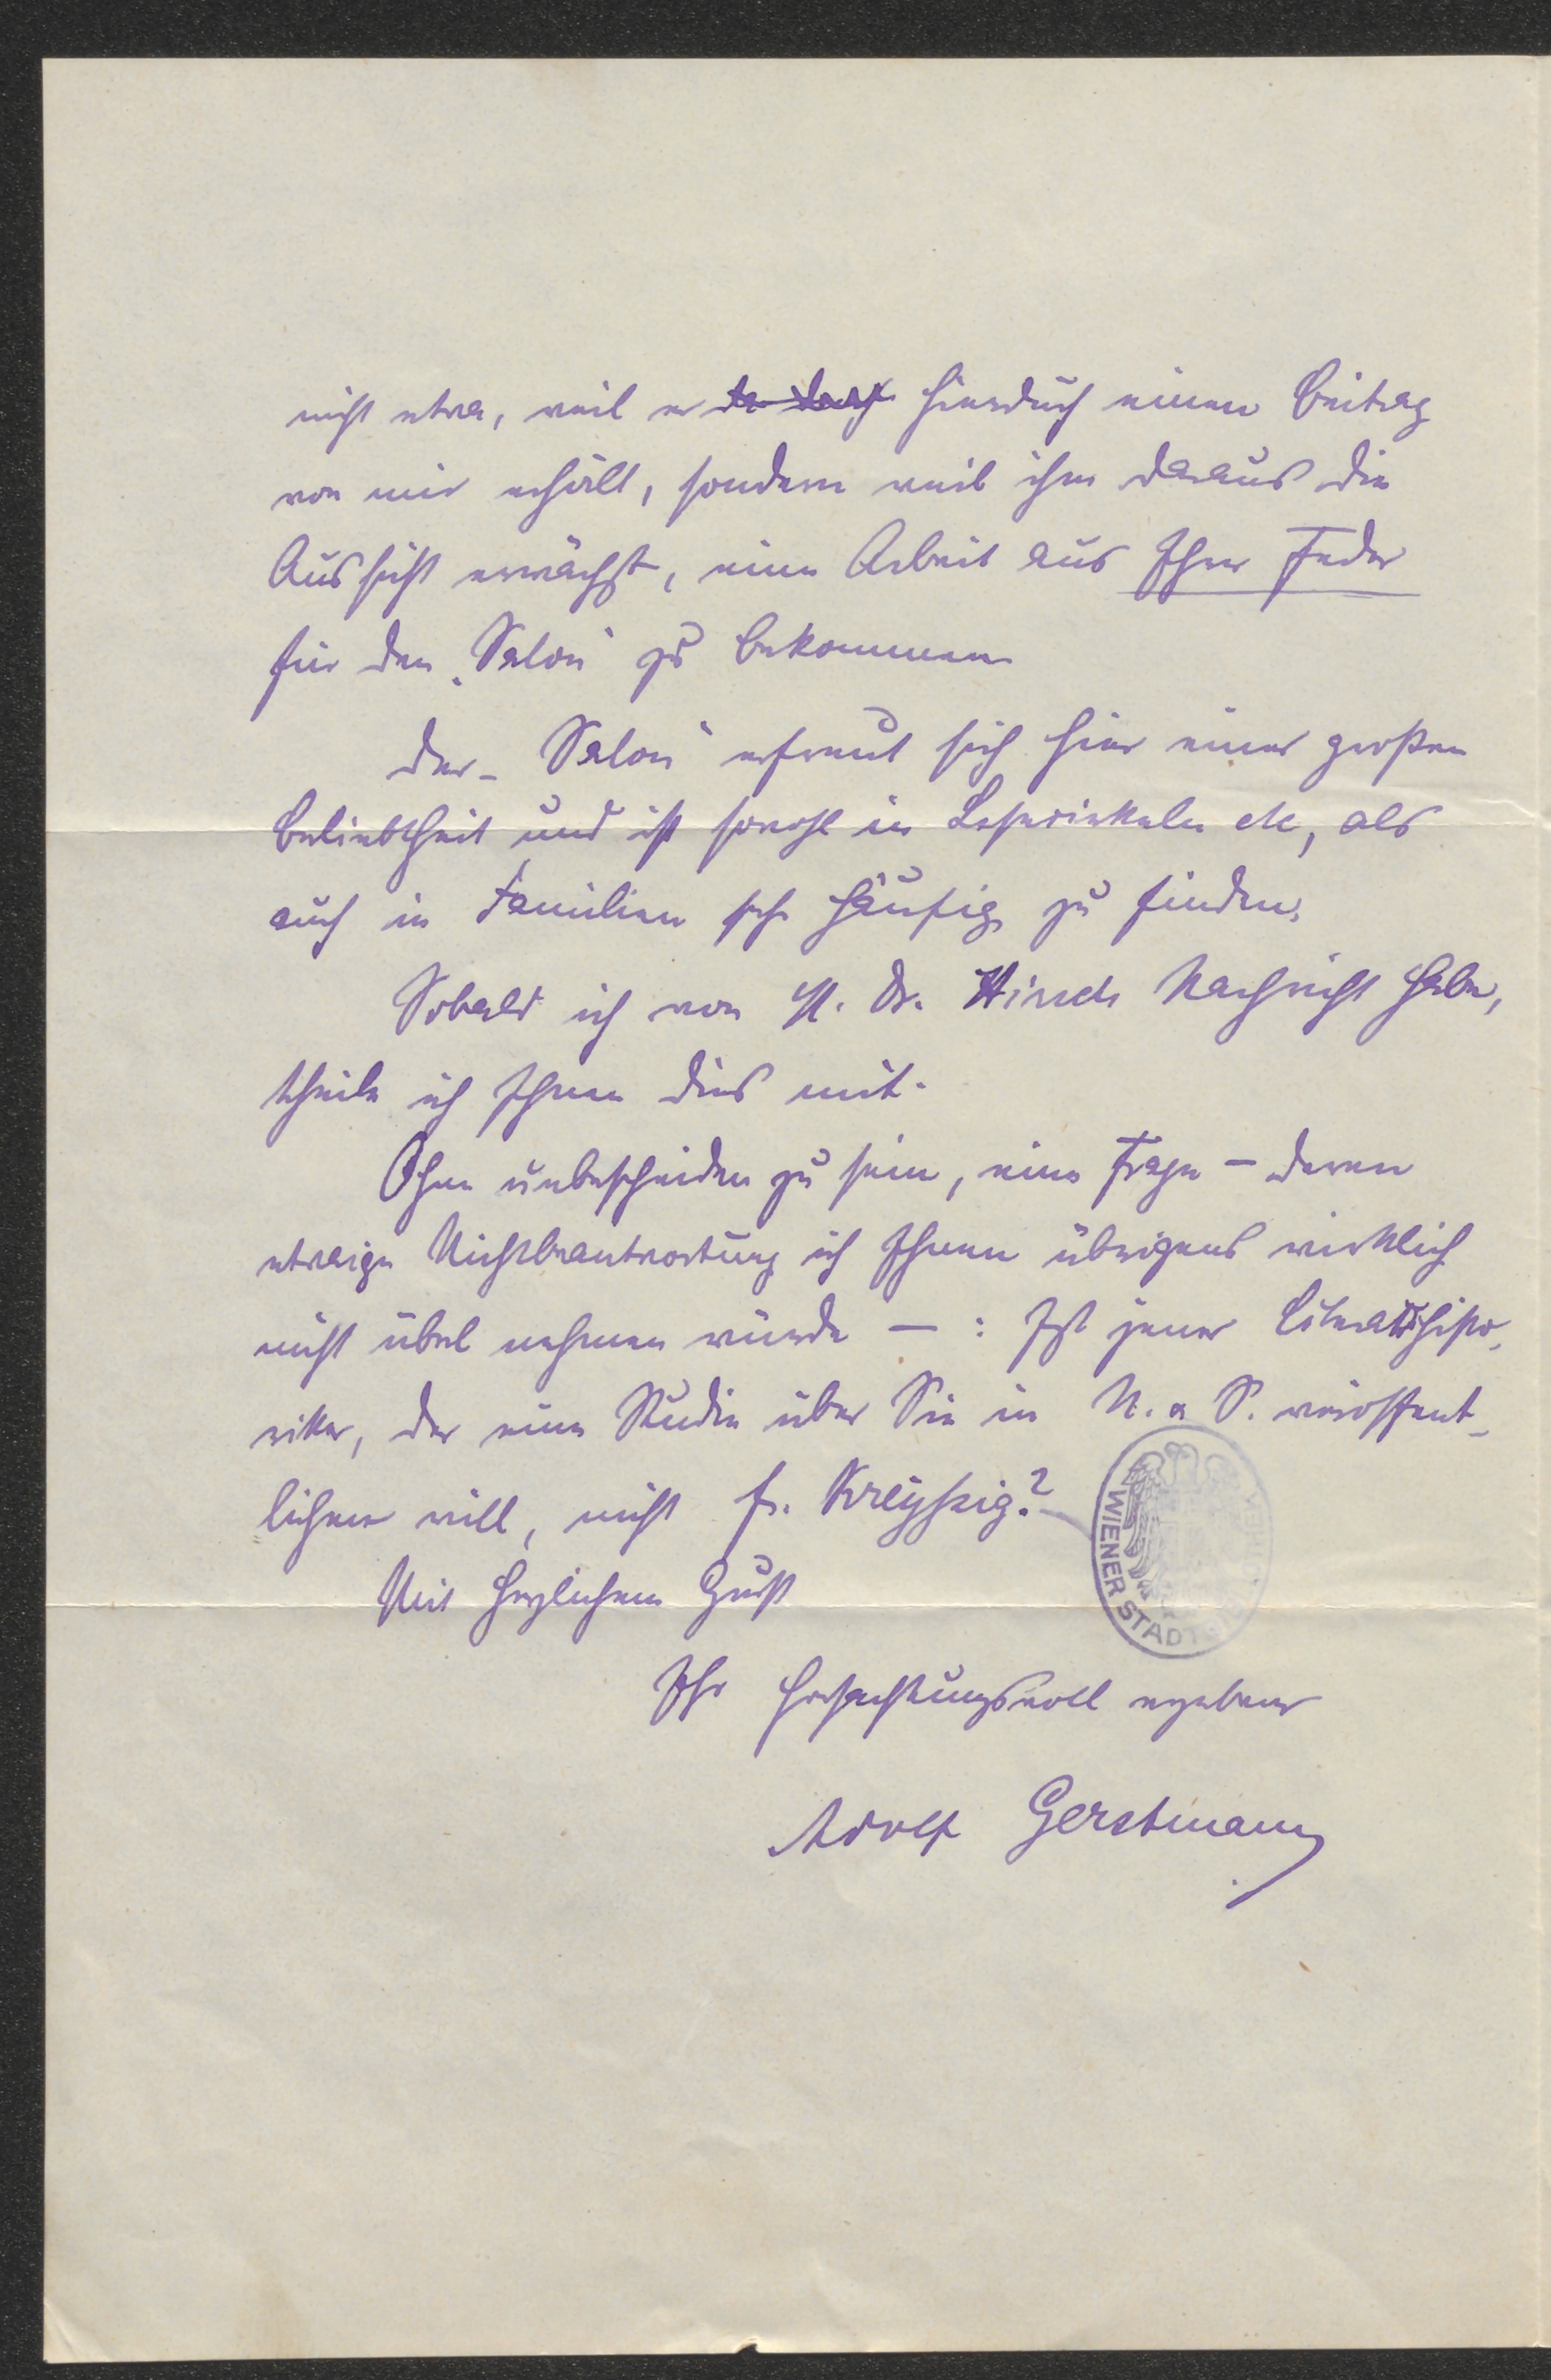 nicht etwa, weil er hierdurch einen Beitrag
von mir erhält, sondern weil ihm daraus die
Aussicht erwächst, eine Arbeit aus Ihrer Feder
für den „Salon“ zu bekommen
Der „Salon“ erfreut sich hier einer großen
Beliebtheit und ist sowohl in Lesezirkeln etc, als
auch in Familien sehr häufig zu finden.
Sobald ich von H. Dr. Hirsch Nachricht habe,
theile ich Ihnen dies mit.
Ohne unbescheiden zu sein, eine Frage – deren
etwaige Nichtbeantwortung ich Ihnen übrigens wirklich
nicht übel nehmen würde – : Ist jener Literarhisto-
riker, der eine Studie über Sie in N. u S. veröffent-
lichen will, nicht Fr. Kreyßig?
Mit herzlichem Gruß
Ihr hochachtungsvoll ergebener
Adolf Gerstmann
WIENER STADT